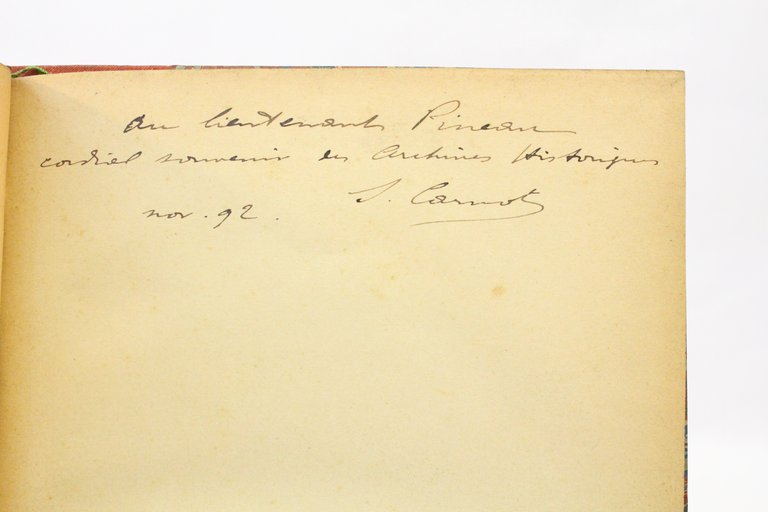 au lieutenant Pineau
cordial souvenir des Archives Historiques
S. Carnot
nov. 92.